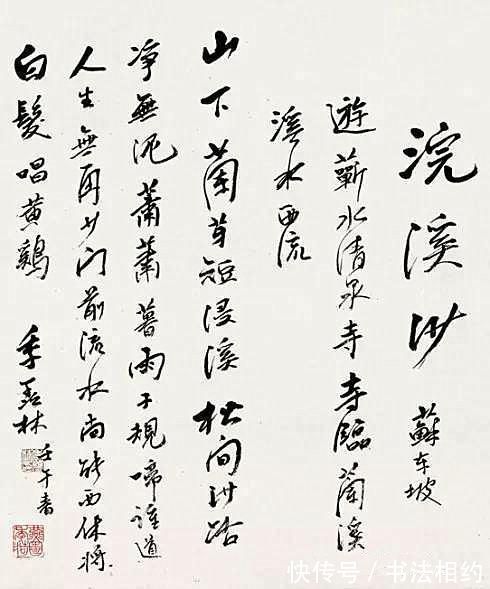 浣溪沙 蘇东坡
遊蘄水清泉寺寺臨蘭溪
溪水西流
山下蘭芽短浸溪松间沙路
净無泥蕭蕭暮雨子規啼誰道
人生無再少门前流水尚能西休将
白髮唱黄鷄 季羡林 壬午書
快传号 / 书法相约